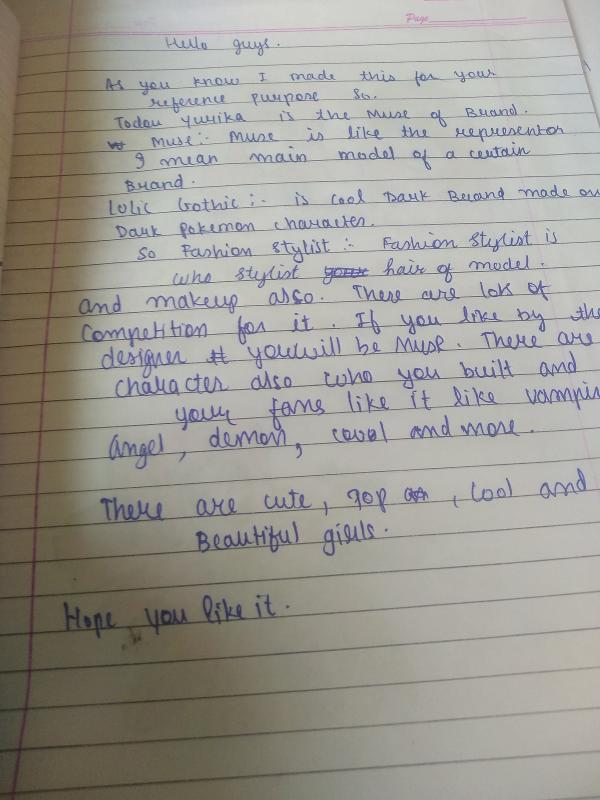 Page
Hello guys.
As you know I made this for your
reference purpose so.
Today Yurika is the Muse of Brand.
Muse:- Muse is like the representor
I mean main model of a certain
Brand.
Lolic Gothic :- is cool Dark Brand made on
Dark pokemon character.
So Fashion stylist :- Fashion stylist is
who stylist hair of model.
and makeup also. There are lots of
Competition for it. If you like by the
designer you will be Muse. There are
character also who you built and
your fans like it like vampir
angel, demon, and more.
There are cute, pop, cool and
Beautiful girls.
Hope you like it.